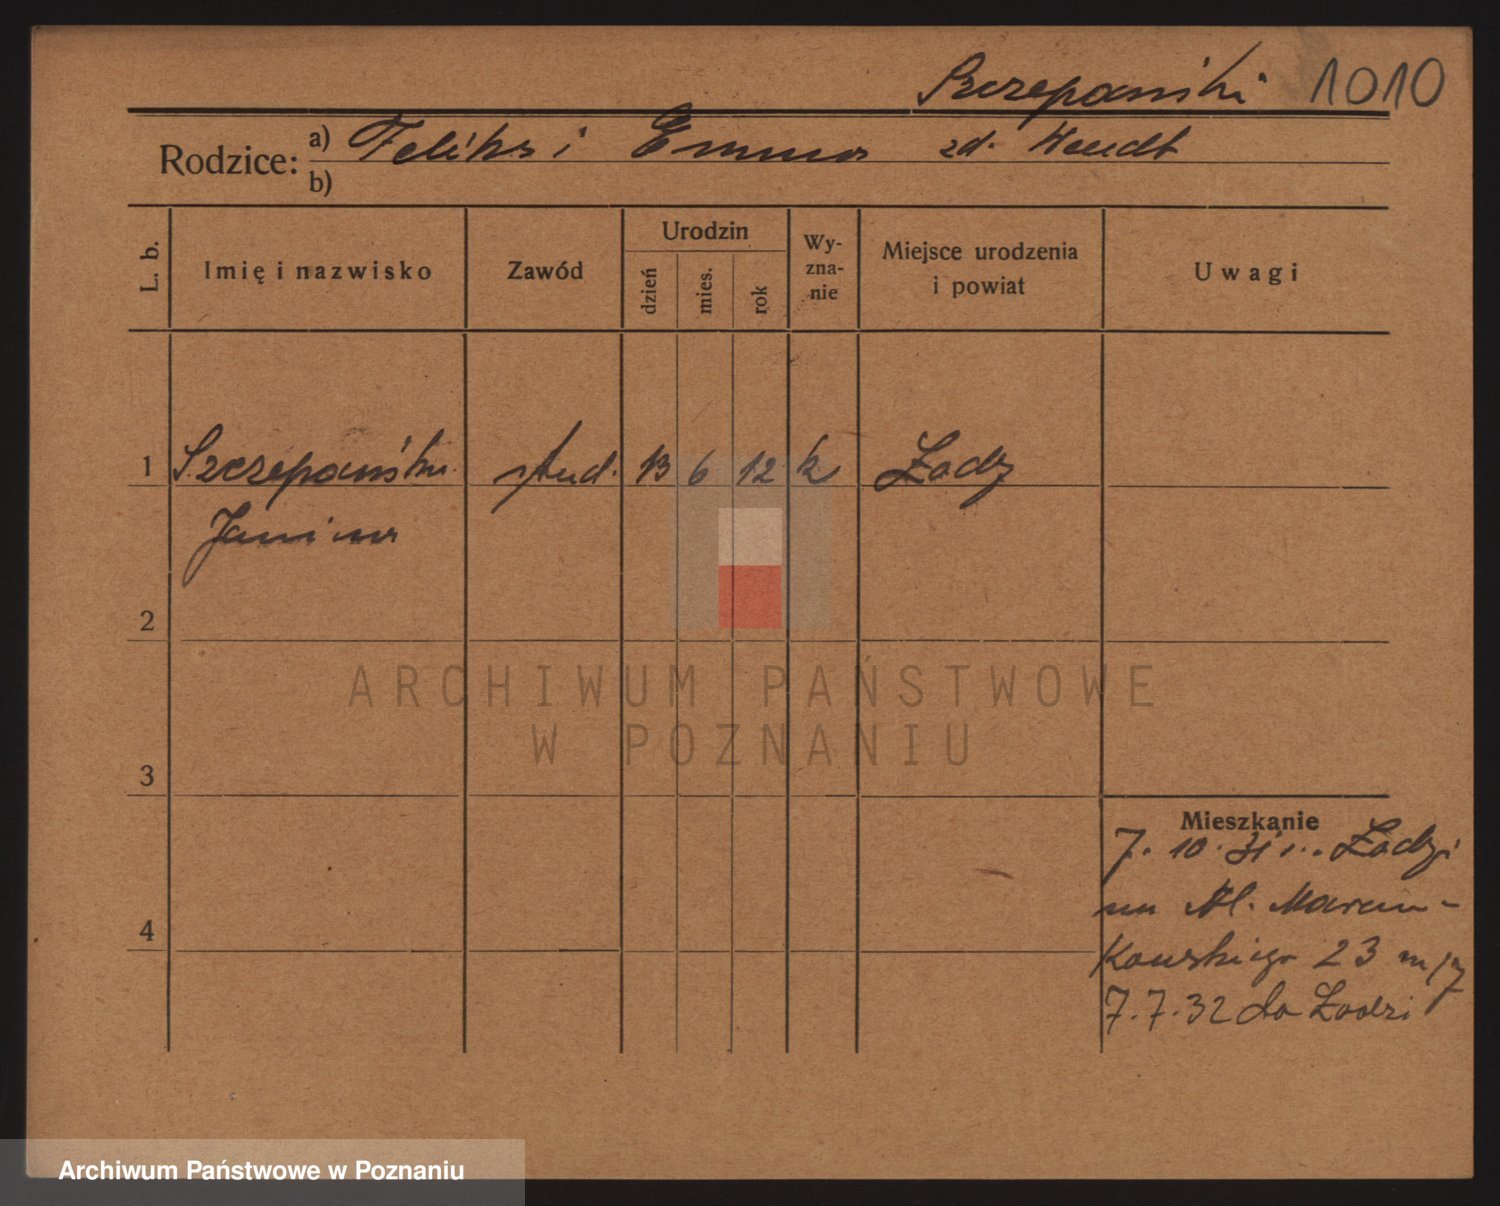 Szczepański 1010
Rodzice: a) Feliks i Emma zd. Wendt
b)
L. b. Imię i nazwisko Zawód Urodzin dzień mies. rok Wy-zna-nie Miejsce urodzenia i powiat Uwagi
1 Szczepańska stud. 13 6 12 k Łodz
Janina
2
3
4
Mieszkanie
7. 10. 31 Łodzi
na Al. Marcin-
kowskiego 23 m
7.7.32 do Łodzi
ARCHIWUM PAŃSTWOWE
W POZNANIU
Archiwum Państwowe w Poznaniu